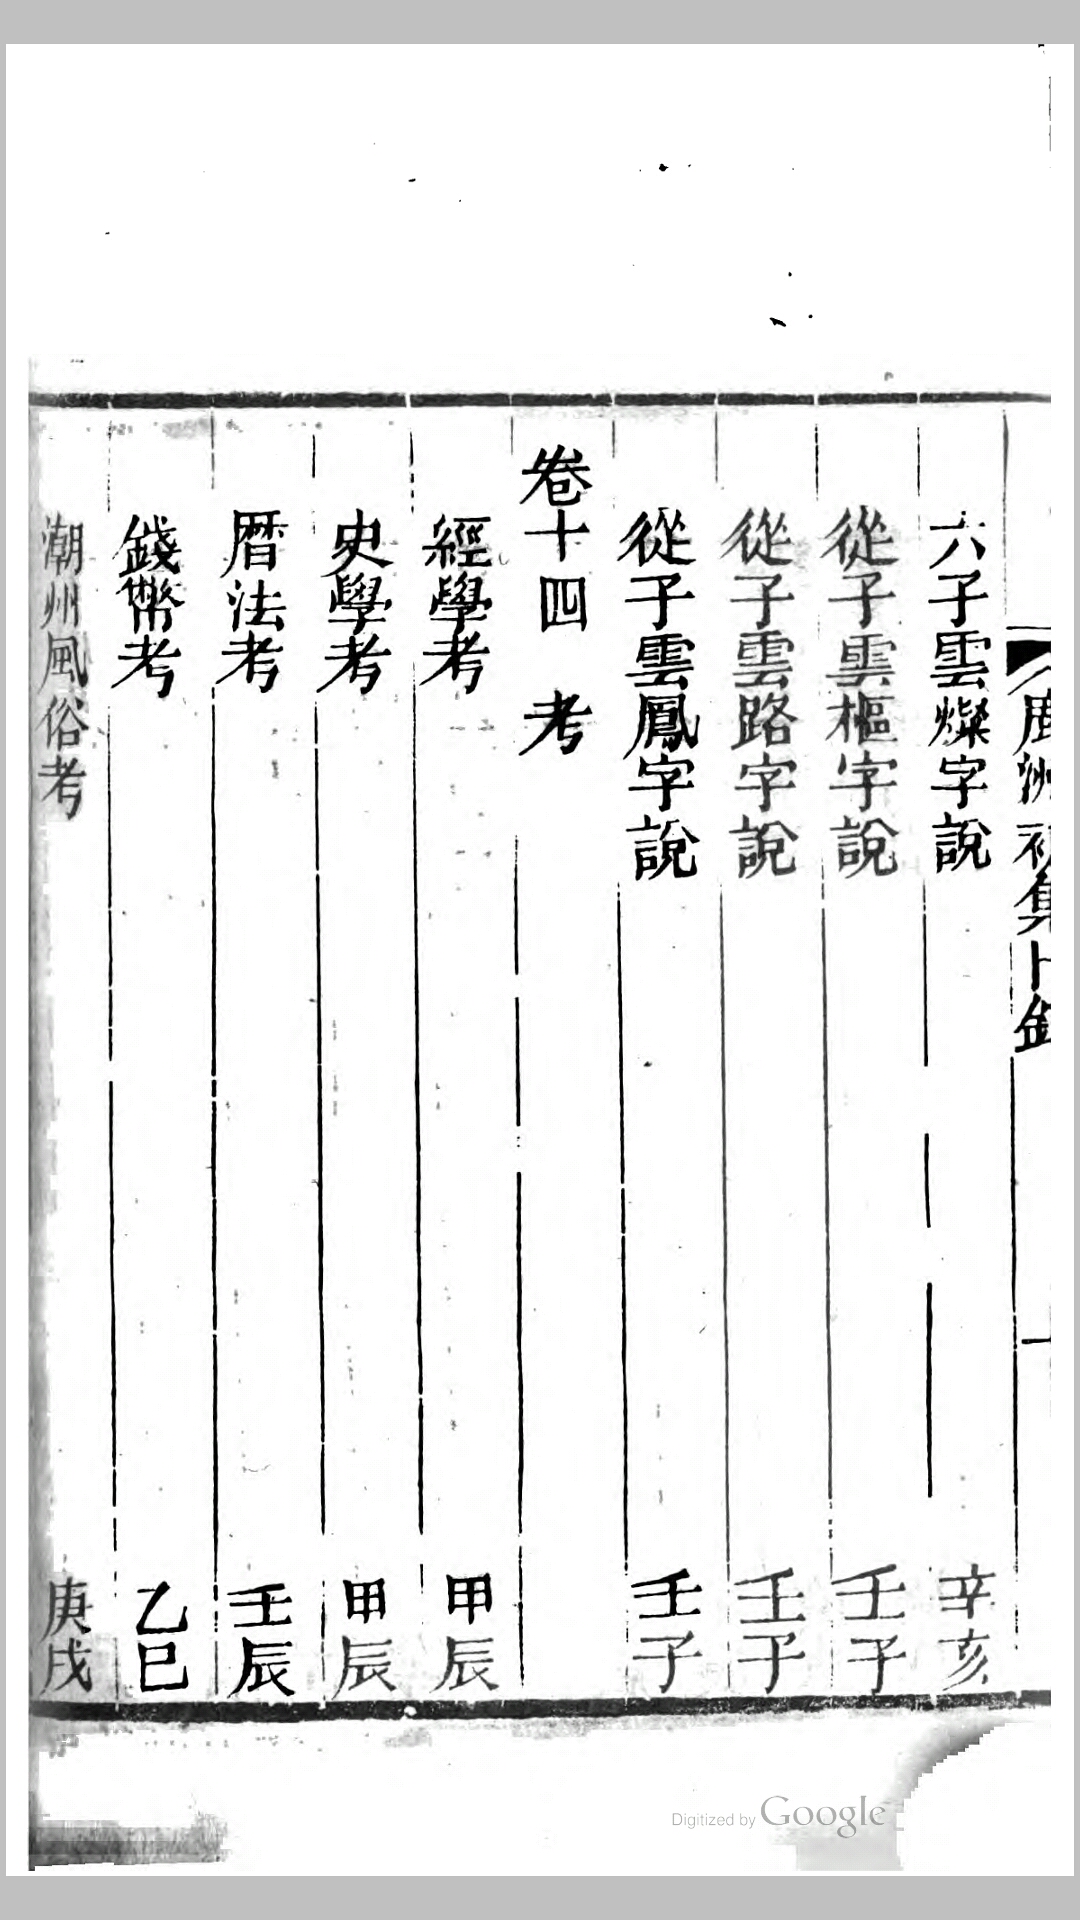 鹿洲初集卜錄
六子雲燦字說 辛亥
從子雲樞字說 壬子
從子雲路字說 壬子
從子雲鳳字說 壬子
卷十四 考
經學考 甲辰
史學考 甲辰
曆法考 壬辰
錢幣考 乙巳
潮州風俗考 庚戌
Digitized by Google